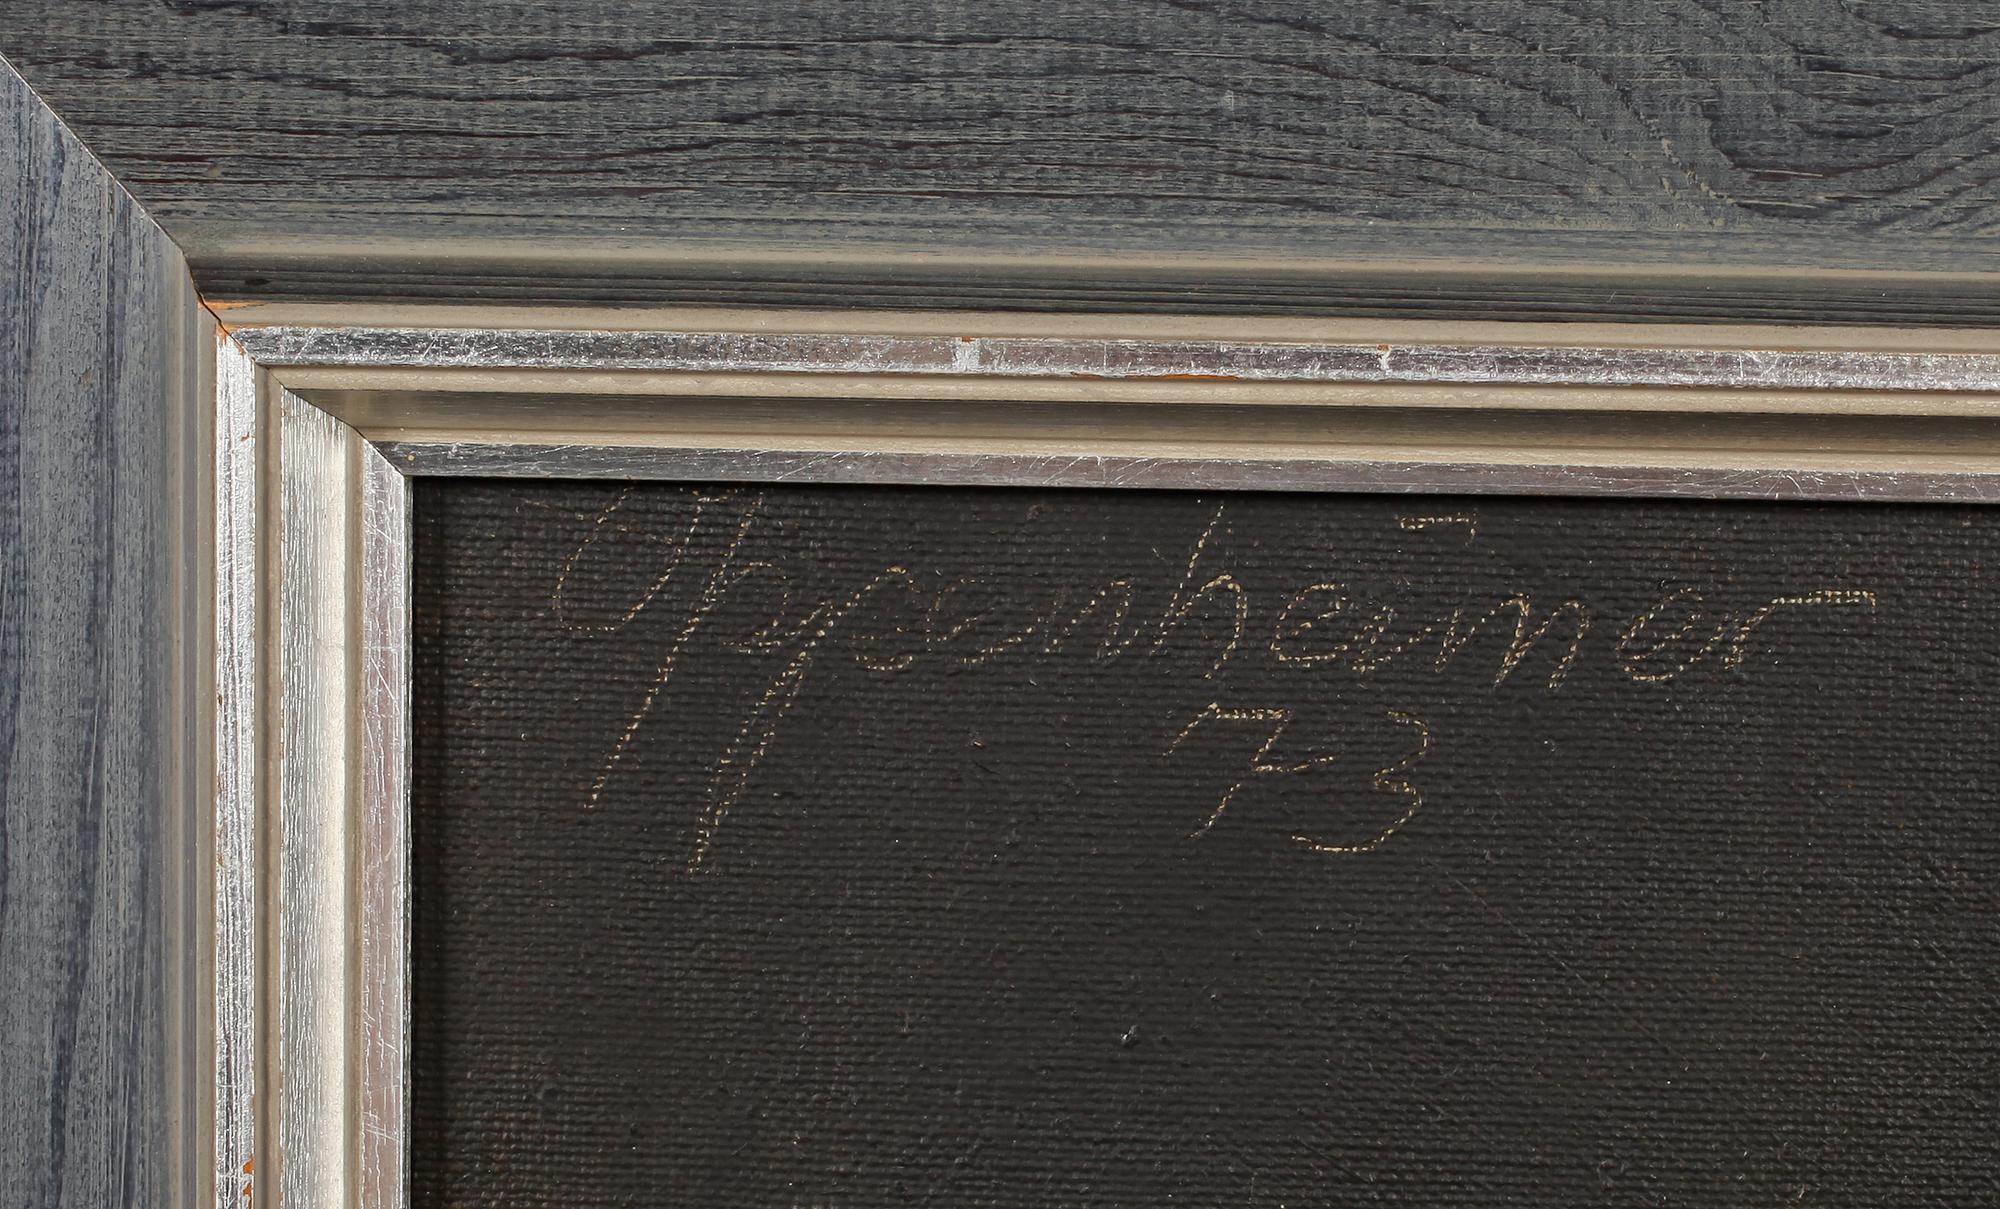 Oppenheimer
73